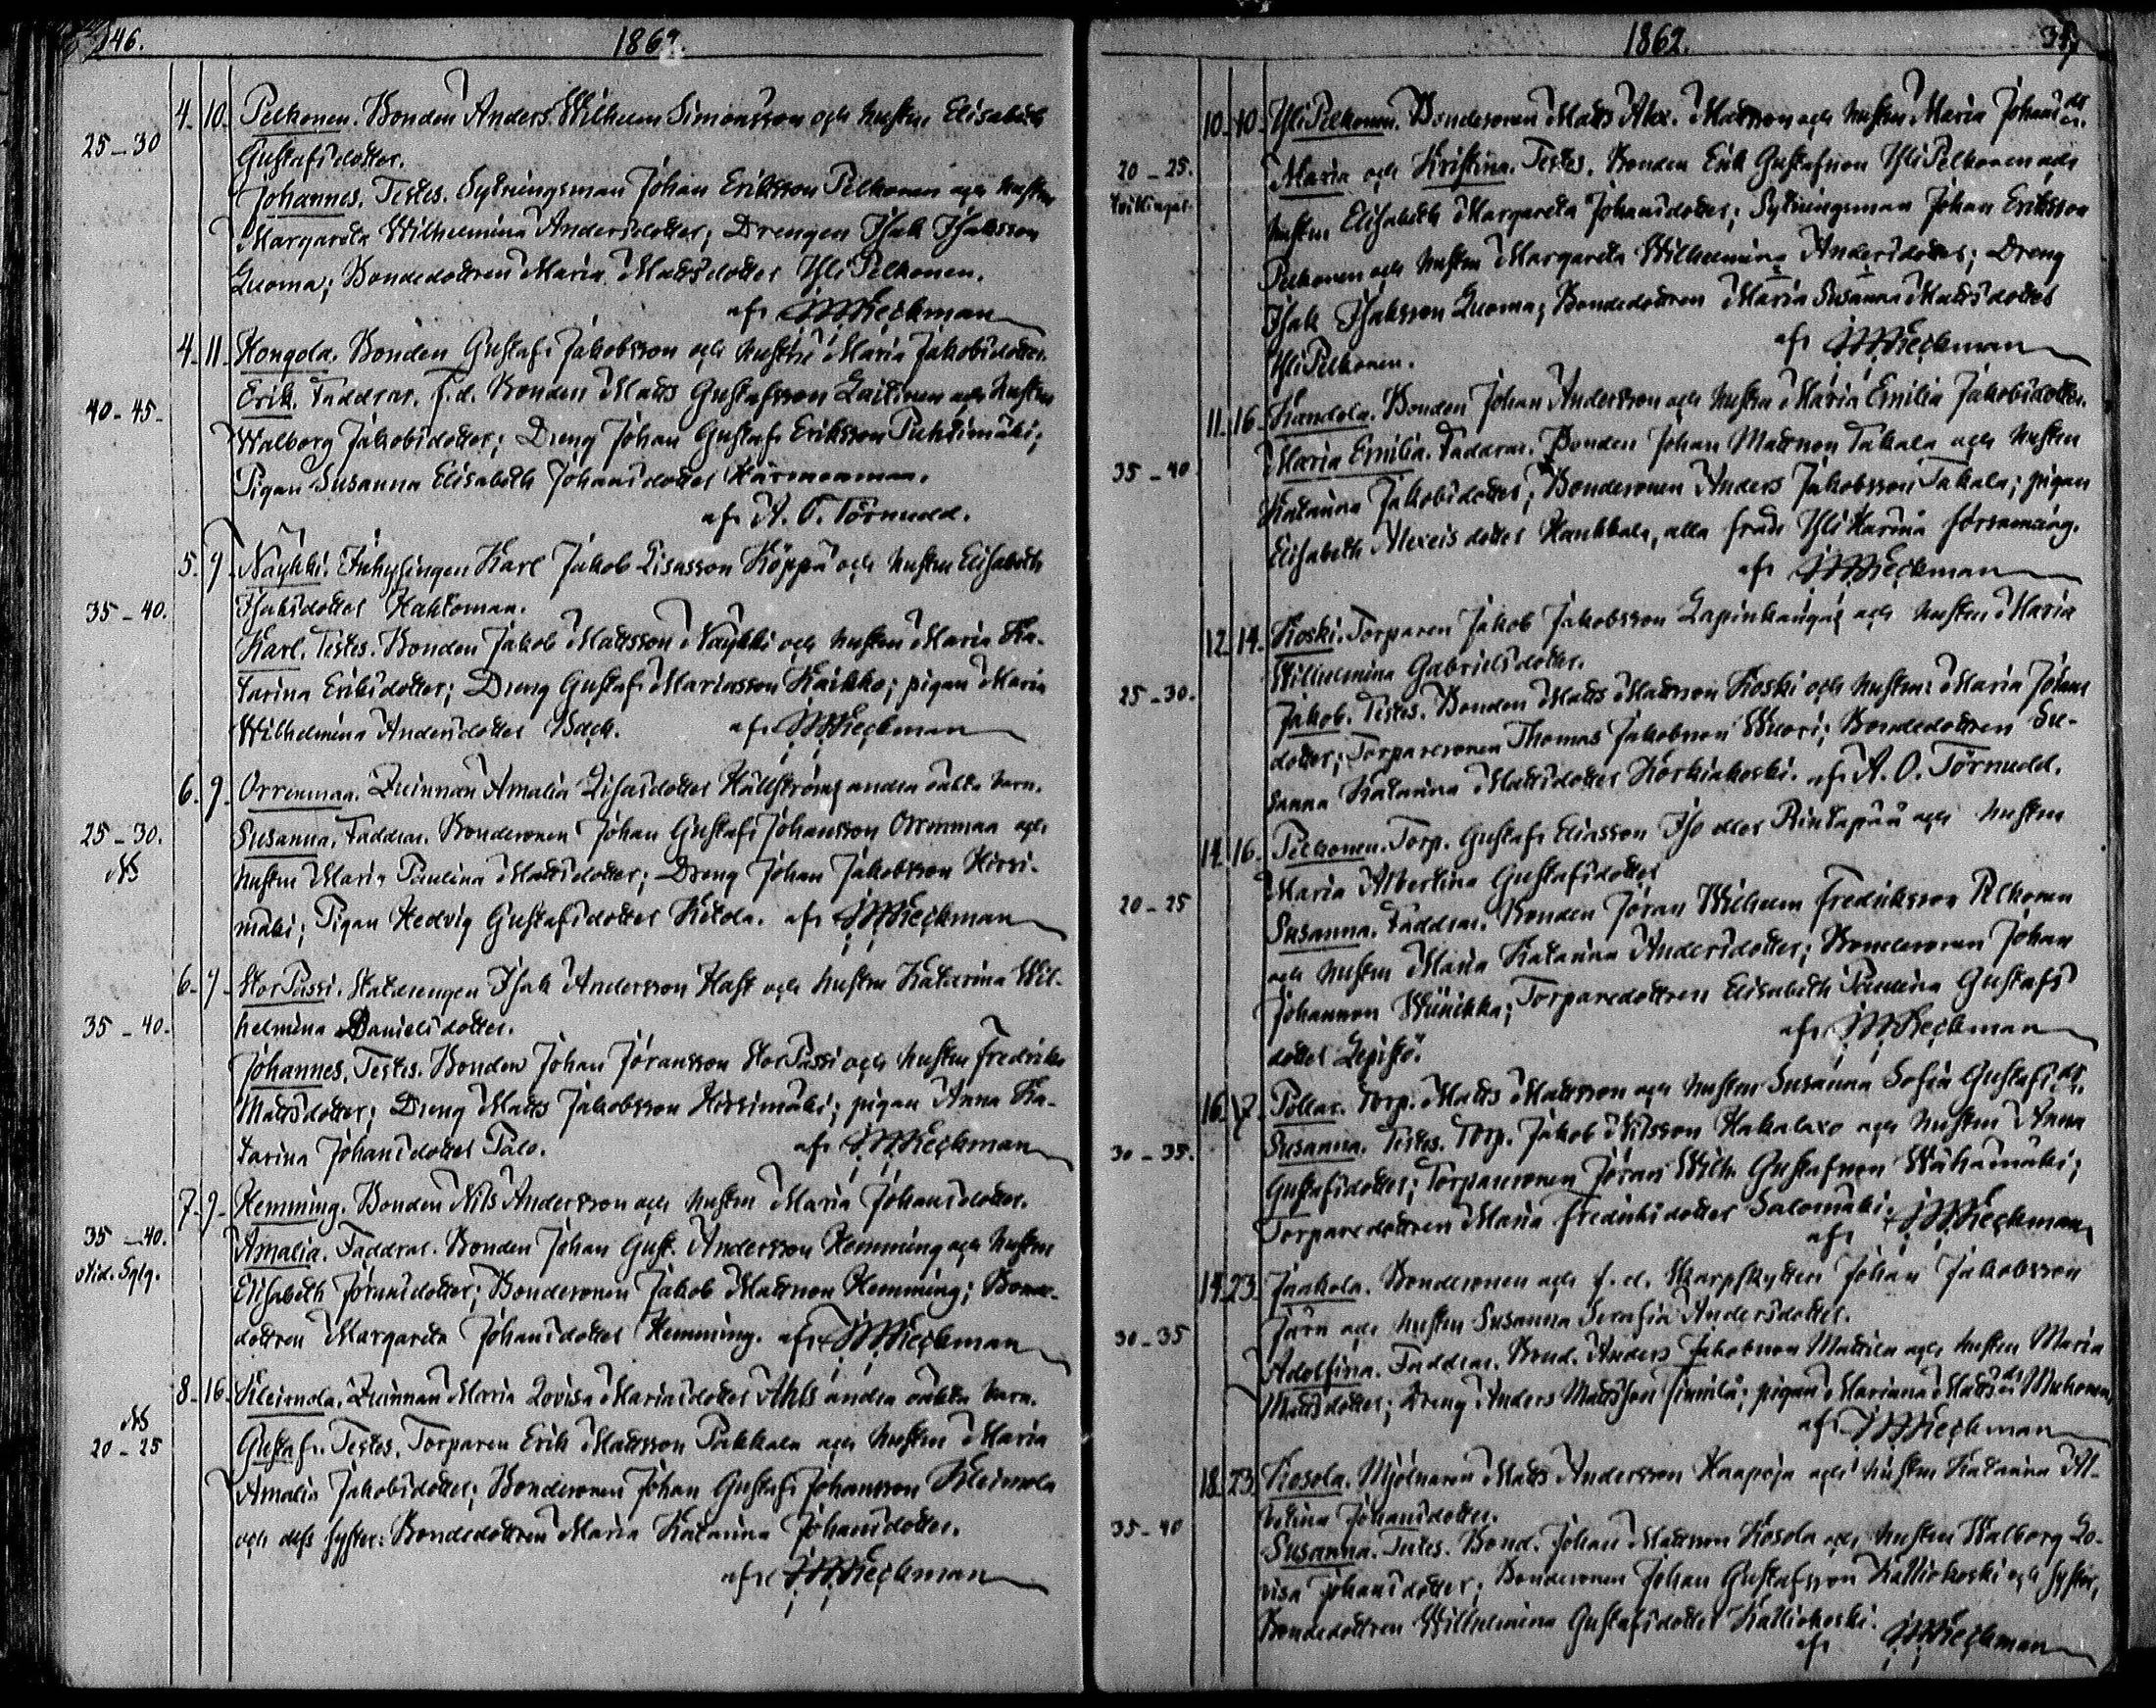 146.
1862.
4. 10. Pelkonen. Bonden Anders Wilhelm Simonsson och hustru Elisabeth
25-30
Gustafsdotter.
Johannes. Testes. Sytningsman Johan Eriksson Pelkonen och hustru
Margareta Wilhelmina Andersdotter; Drengen Isak Isaksson
Luoma; Bondedottren Maria Mattsdotter YliPelkonen.
af
4. 11. Kongola. Bonden Gustaf Jakobsson och hustru Maria Jakobsdotter.
Erik. Faddrar. f.d. Bonden Matts Gustafsson Laitinen och hustru
40-45-
Walborg Jakobsdotter; Dreng Johan Gustaf Eriksson Puhtimäki;
Pigan Susanna Elisabeth Johansdotter Härmänmaa.
af A. O. Törnudd.
5. 9. Näykki. Inhysingen Karl Jakob Lisasson Köppä och hustru Elisabeth
35-40.
Isaksdotter Hahtomaa.
Karl. Testes. Bonden Jakob Mattsson Näykki och hustru Maria Ka-
tarina Eriksdotter; Dreng Gustaf Mariasson Kaikko; pigan Maria
Wilhelmina Andersdotter Back. af
6. 9. Orrenmaa. Quinnan Amalia Lisasdotter Hällströms andra oäkta barn.
25-30.
Susanna. Faddrar. Bondesonen Johan Gustaf Johansson Orrenmaa och
hustru Maria Paulina Mattsdotter; Dreng Johan Jakobsson Hirsi-
mäki; Pigan Hedvig Gustafsdotter Ketola. af
6. 9. StorPassi. Statdrengen Isak Andersson Hast och hustru Katarina Wil-
35-40.
helmina Danielsdotter.
Johannes. Testes. Bonden Johan Jöransson StorPassi och hustru Fredrika
Mattsdotter; Dreng Matts Jakobsson Hirsimäki; pigan Anna Ka-
tarina Johansdotter Talo. af
7. 9. Hemming. Bonden Nils Andersson och hustru Maria Johansdotter.
35-40.
Amalia. Faddrar. Bonden Johan Gust. Andersson Hemming och hustru
Elisabeth Jöransdotter; Bondesonen Jakob Mattsson Hemming; Bonde-
dottren Margareta Johansdotter Hemming. af
8. 16. Kleimola. Quinnan Maria Lovisa Mariasdotter Ahls andra oäkta barn.
20-25
Gustaf. Testes. Torparen Erik Mattsson Pakkala och hustru Maria
Amalia Jakobsdotter; Bondesonen Johan Gustaf Johansson Kleimola
och dess syster: Bondedottren Maria Katarina Johansdotter.
af
1862.
10. 10. YliPelkonen. Bondesonen Matts Alex. Mattsson och hustru Maria Johansdr.
20-25.
Tvillingar.
Maria och Kristina. Testes. Bonden Erik Gustafsson YliPelkonen och
hustru Elisabeth Margareta Johansdotter; Sytningsman Johan Eriksson
Pelkonen och hustru Margareta Wilhelmina Andersdotter; Dreng
Isak Isaksson Luoma; Bondedottren Maria Susanna Mattsdotter
YliPelkonen. af
11. 16. Kandola. Bonden Johan Andersson och hustru Maria Emilia Jakobsdotter.
35-40
Maria Emilia. Faddrar. Bonden Johan Mattsson Takala och hustru
Katarina Jakobsdotter; Bondesonen Anders Jakobsson Takala; pigan
Elisabeth Alexeisdotter Kankkala, alla från YliKarina församling.
af
12. 14. Koski. Torparen Jakob Jakobsson Lapinkangas och hustru Maria
25-30.
Wilhelmina Gabrielsdotter.
Jakob. Testes. Bonden Matts Mattsson Koski och hustru Maria Johans
dotter; Torparesonen Thomas Jakobsson Wuori; Bondedottren Su-
sanna Katarina Mattsdotter Korkiakoski. af A. O. Törnudd.
14. 16. Pelkonen. Torp. Gustaf Eliasson Iso eller Rintapää och hustru
20-25
Maria Albertina Gustafsdotter
Susanna. Faddrar. Bonden Jöran Wilhelm Fredriksson Pelkonen
och hustru Maria Katarina Andersdotter; Bondesonen Johan
Johansson Wäinikka; Torparedottren Elisabeth Paulina Gustafs
dotter Lepistö. af
16. 17. Pollar. Torp. Matts Mattsson och hustru Susanna Sofia Gustafsdr.
30-35.
Susanna. Testes. Torp. Jakob Nilsson Hakalaxo och hustru Anna
Gustafsdotter; Torparesonen Jöran Wilh. Gustafsson Wähämäki;
Torparedottren Maria Fredriksdotter Salomäki.
af
14. 23. Jaakola. Bondesonen och f.d. Skarpskytten Johan Jakobsson
30-35
Järn och hustru Susanna Serafia Andersdotter.
Adolfina. Faddrar. Bond. Anders Jakobsson Mattila och hustru Maria
Mattsdotter; Dreng Anders Mattsson Simila; pigan Mariana Mattsdr
af
18. 23. Kosola. Mjölnaren Matts Andersson Haapoja och hustru Katarina Al-
35-40
betina Johansdotter.
Susanna. Testes. Bond. Johan Mattsson Kosola och hustru Walborg Lo-
visa Johansdotter; Bondesonen Johan Gustafsson Kalliokoski och syster,
Bondedottren Wilhelmina Gustafsdotter Kalliokoski.
af